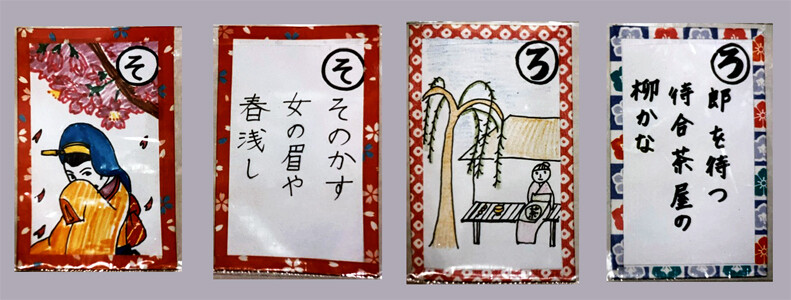 そ
そ
そのかす
女の眉や
春浅し
ろ
茶
ろ
郎を待つ
待合茶屋の
柳かな